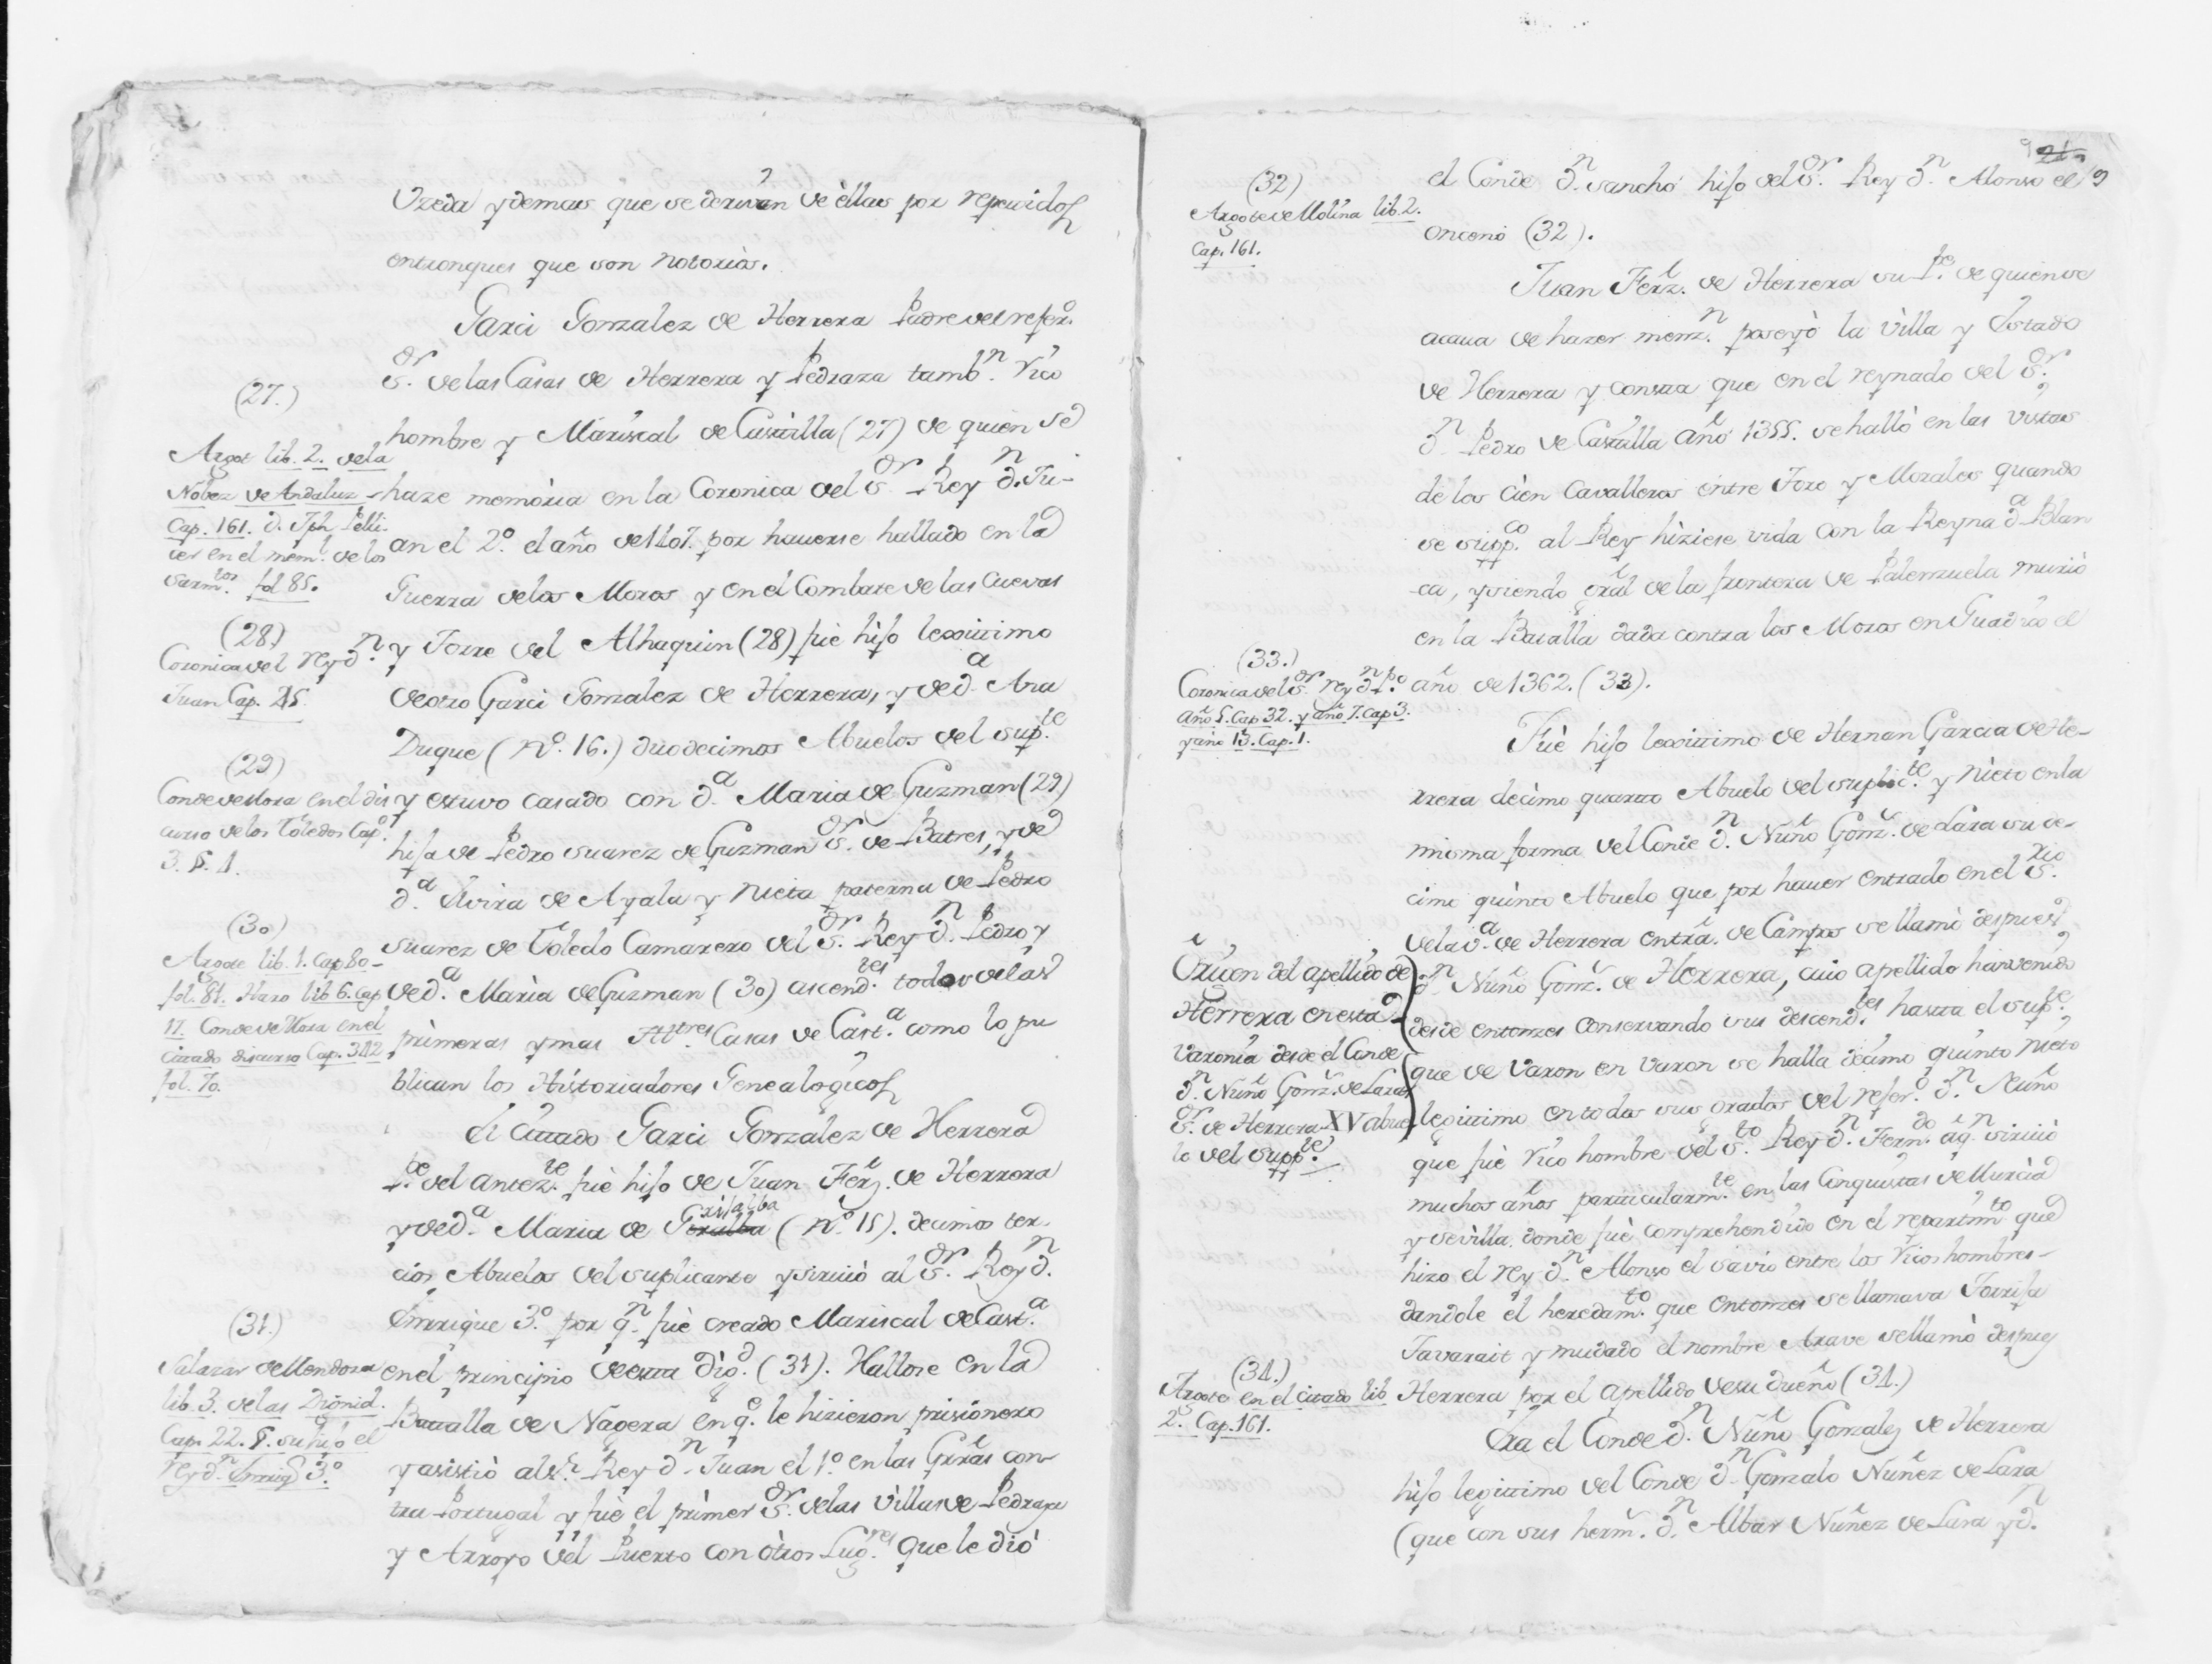 Uzeda y demas que se derivan de èllas por repetidos
entronques que son notorias.
Garci Gonzalez de Herrera Padre del refer.º
S.or de las Casas de Herrera y Pedraza tamb.n rico
hombre y Mariscal de Castilla (27) de quien se
haze memoria en la Coronica del S.or Rey D.n Ju-
an el 2.º el año de 1407. por hauerse hallado en la
Guerra de los Moros y en el Combate de las Cuevas
y Torre del Alhaquin (28) fuè hijo lexitimo
de otro Garci Gonzalez de Herrera, y de d.a Ana
Duque (N.º 16.) duodecimos Abuelos del sup.te
y estuvo casado con d.a Maria de Guzman (29)
hija de Pedro Suarez de Guzman S.or de Batres, y de
d.a Elvira de Ayala y nieta paterna de Pedro
Suarez de Toledo Camarero del S.or Rey D.n Pedro y
de d.a Maria de Guzman (30) ascend.tes todos de las
primeras y mas Ill.tres Casas de Cast.a como lo pu
blican los Historiadores Genealogicos
El Citado Garci Gonzalez de Herrera
P.e del antez.te fuè hijo de Juan Ferz. de Herrera
y de d.a Maria de Grijalba (N.º 15). decimos ter-
cios Abuelos del suplicante y sirviò al S.or Rey D.n
Enrrique 3.º por q.n fuè creado Mariscal de Cast.a
en el principio de esta Dig.d (31). Hallose en la
Batalla de Nagera en q.e le hizieron prisionero
y asistiò al S.r Rey D.n Juan el 1.º en las Grras con-
tra Portugal y fuè el primer S.or de las Villas de Pedraza
y Arroyo del Puerto con ôtros Lug.res que le diò
(27.)
Argot lib. 2. de la
Nobez de Andaluz
Cap. 161. D. Jph Pelli-
cer en el mem.l de los
Sarm.tos fol 85.
(28.)
Coronica del rey D.n
Juan Cap. 45.
(29)
Conde de Mora en el dis
curso de los Toledos Cap.º
3. §. 1.
(30)
Argote lib. 1. Cap 80-
fol. 81. Haro lib 6. Cap
11. Conde de Mora en el
citado discurso Cap. 3 §2
fol. 70.
(31.)
Salazar de Mendoza
lib. 3. de las Dignid.
Cap. 22. §. su hijo el
rey D.n Enrriq.e 3.º
9
el Conde D.n Sancho hijo del S.or Rey D.n Alonso el
onceno (32).
Juan Ferz. de Herrera su P.e de quien se
acava de hazer menz.n poseyò la Villa y Estado
de Herrera y consta que en el reynado del S.or
D.n Pedro de Castilla año 1355. se hallò en las vistas
de los Cien Cavalleros entre Toro y Morales quando
se supp.co al Rey hiziese vida con la Reyna d.a Blan
ca, y siendo gral de la frontera de Palenzuela muriò
en la Batalla dada contra los Moros en Guadix el
año de 1362. (33).
Fuè hijo lexitimo de Hernan Garcia de He-
rrera dècimo quarto Abuelo del suplic.te y nieto en la
misma forma del Conde D.n Nuño Gonz. de Lara su de-
cimo quinto Abuelo que por hauer entrado en el S.rio
de la V.a de Herrera entrã. de Campos se llamò despues
D.n Nuño Gonz. de Herrera, cuio apellido han venido
desde entonzes Conservando sus descend.tes hasta el sup.te
que de Varon en Varon se halla decimo quinto nieto
legitimo en todos sus grados del refer.º D.n Nuño
que fuè rico hombre del S.to Rey D.n Fern.do aq.n sirviò
muchos años particularm.te en las Conquistas de Murcia
y Sevilla. donde fuè comprehendido en el repartim.to que
hizo el rey D.n Alonso el savio entre los ricos hombres-
dandole el heredam.to que entonzes se llamava Torrija
Tavarait y mudado el nombre Arave se llamò despues
Herrera por el apellido de su dueño (34.)
Era el Conde D.n Nuño Gonzalez de Herrera
hijo legitimo del Conde D.n Gonzalo Nuñez de Lara
(que con sus herm.s D.n Albar Nuñez de Lara y D.n
(32)
Argote de Molina lib. 2.
Cap. 161.
(33.)
Coronica del S.or rey D.n P.º
año 5. Cap 32. y año 7. Cap 3.
y año 13. Cap. 1.
Origen del apellido de
Herrera en esta
Varonia desde el Conde
D.n Nuño Gonz. de Lara
S.or de Herrera XV abue
lo del supp.te
(34.)
Argote en el citado lib
2. Cap. 161.